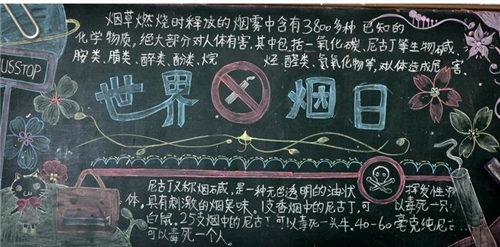 烟草燃烧时释放的烟雾中含有3800多种 已知的
化学物质,绝大部分对人体有害,其中包括一氧化碳、尼古丁等生物碱、
胺类、腈类、醇类、酚类、烷 烃、醛类、氮氧化物等,对人体造成危害。
USSTOP
世界 烟日
尼古丁又称烟碱,是一种无色透明的油状 挥发性
体,具有刺激的烟臭味。1支香烟中的尼古丁可 以毒死一只
白鼠。25支烟中的尼古丁可以毒死一头牛。40-60 毫克纯尼
可以毒死一个人。